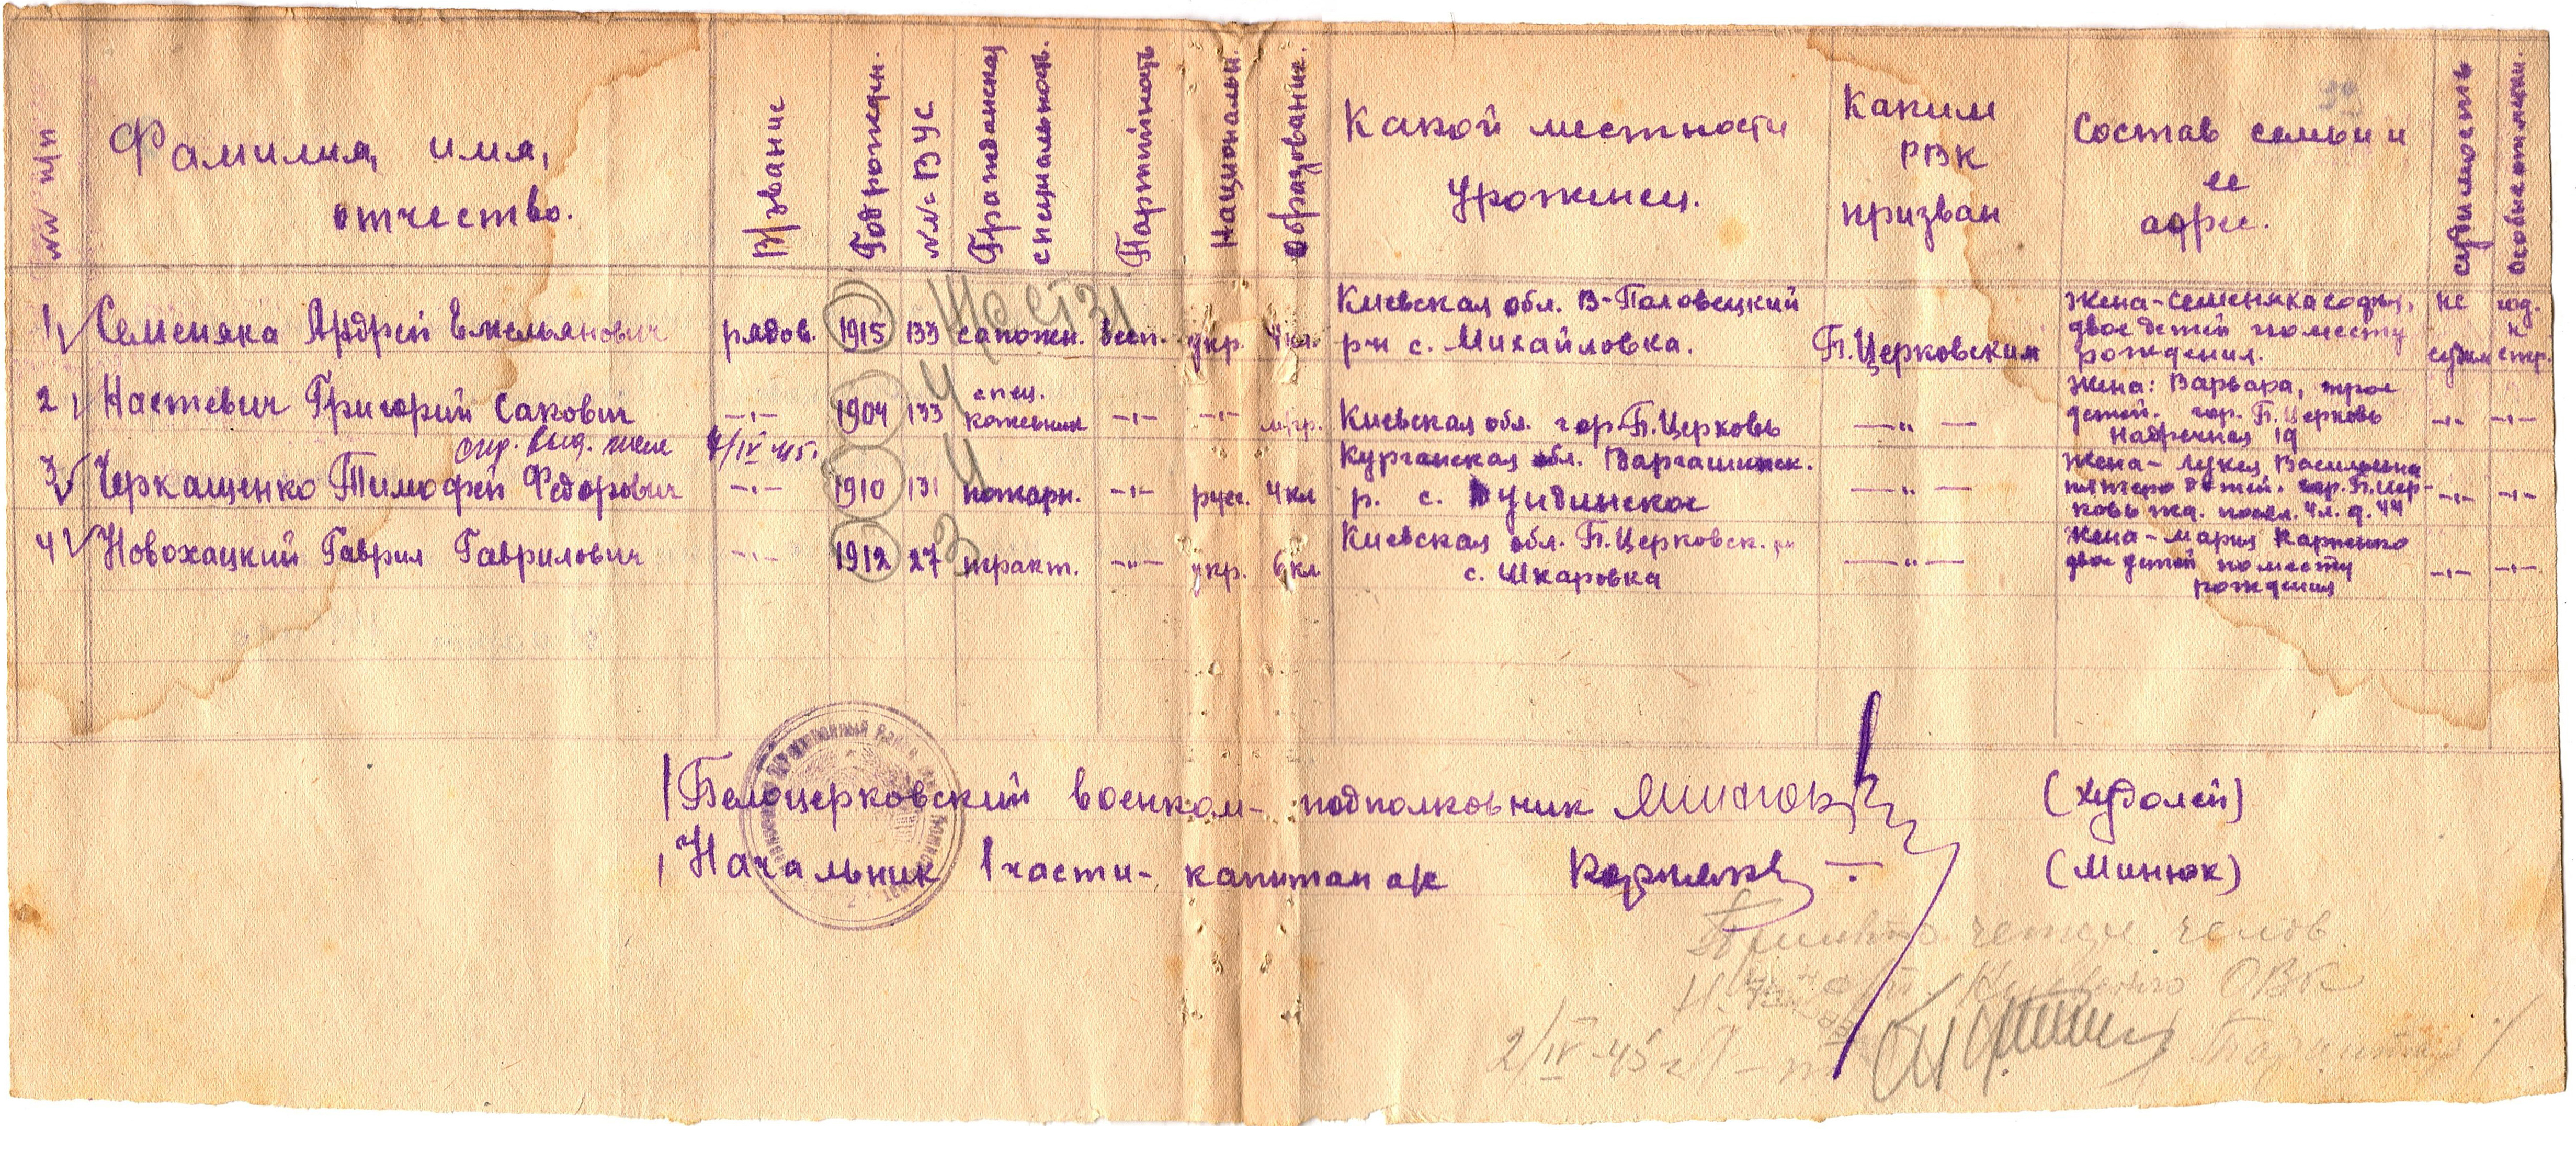 NN п/п
Фамилия, имя,
отчество.
В/звание
Год рожден.
NN= ВУС
Гражданская
специальность.
Партийность
Националь.
Образование.
Какой местности
уроженец.
Каким
РВК
призван
Состав семьи и
ее
адрес.
судимость
Особые отметки.
1, Семеняка Андрей Емельянович рядов. 1915 133 сапожн. бесп. укр. 4 кл. Киевская обл. В-Половецкий
р-н с. Михайловка. Б.Церковским
жена - Семеняка Софья,
двое детей по месту
рождения.
не
судим
год.
к
стр.
2, Настевич Григорий Сакович —"— 1904 133 спец.
кожевник —"— —"— Киевская обл. гор. Б.Церковь —"—
жена: Варвара, трое
детей. гор. Б.Церковь
Надречная 19 —"— —"—
4/IV 45г.
3, Черкащенко Тимофей Федорович —"— 1910 131 пожарн. —"— русс. 4 кл Курганская обл. Варгашинск.
р. с. —"—
жена - Лукея Васильевна
пятеро детей. гор. Б.Цер-
ковь —"— —"—
4, Новохацкий Гаврил Гаврилович —"— 1912 27 тракт. —"— укр. 6 кл Киевская обл. Б.Церковск. рн
с. Шкаровка —"—
жена - Мария Карпенко
двое детей по месту
рождения —"— —"—
Белоцерковский военком - подполковник (Худолей)
Начальник 1 части - капитан а/с (Минюк)
челов.
ОВК
2/IV-45г